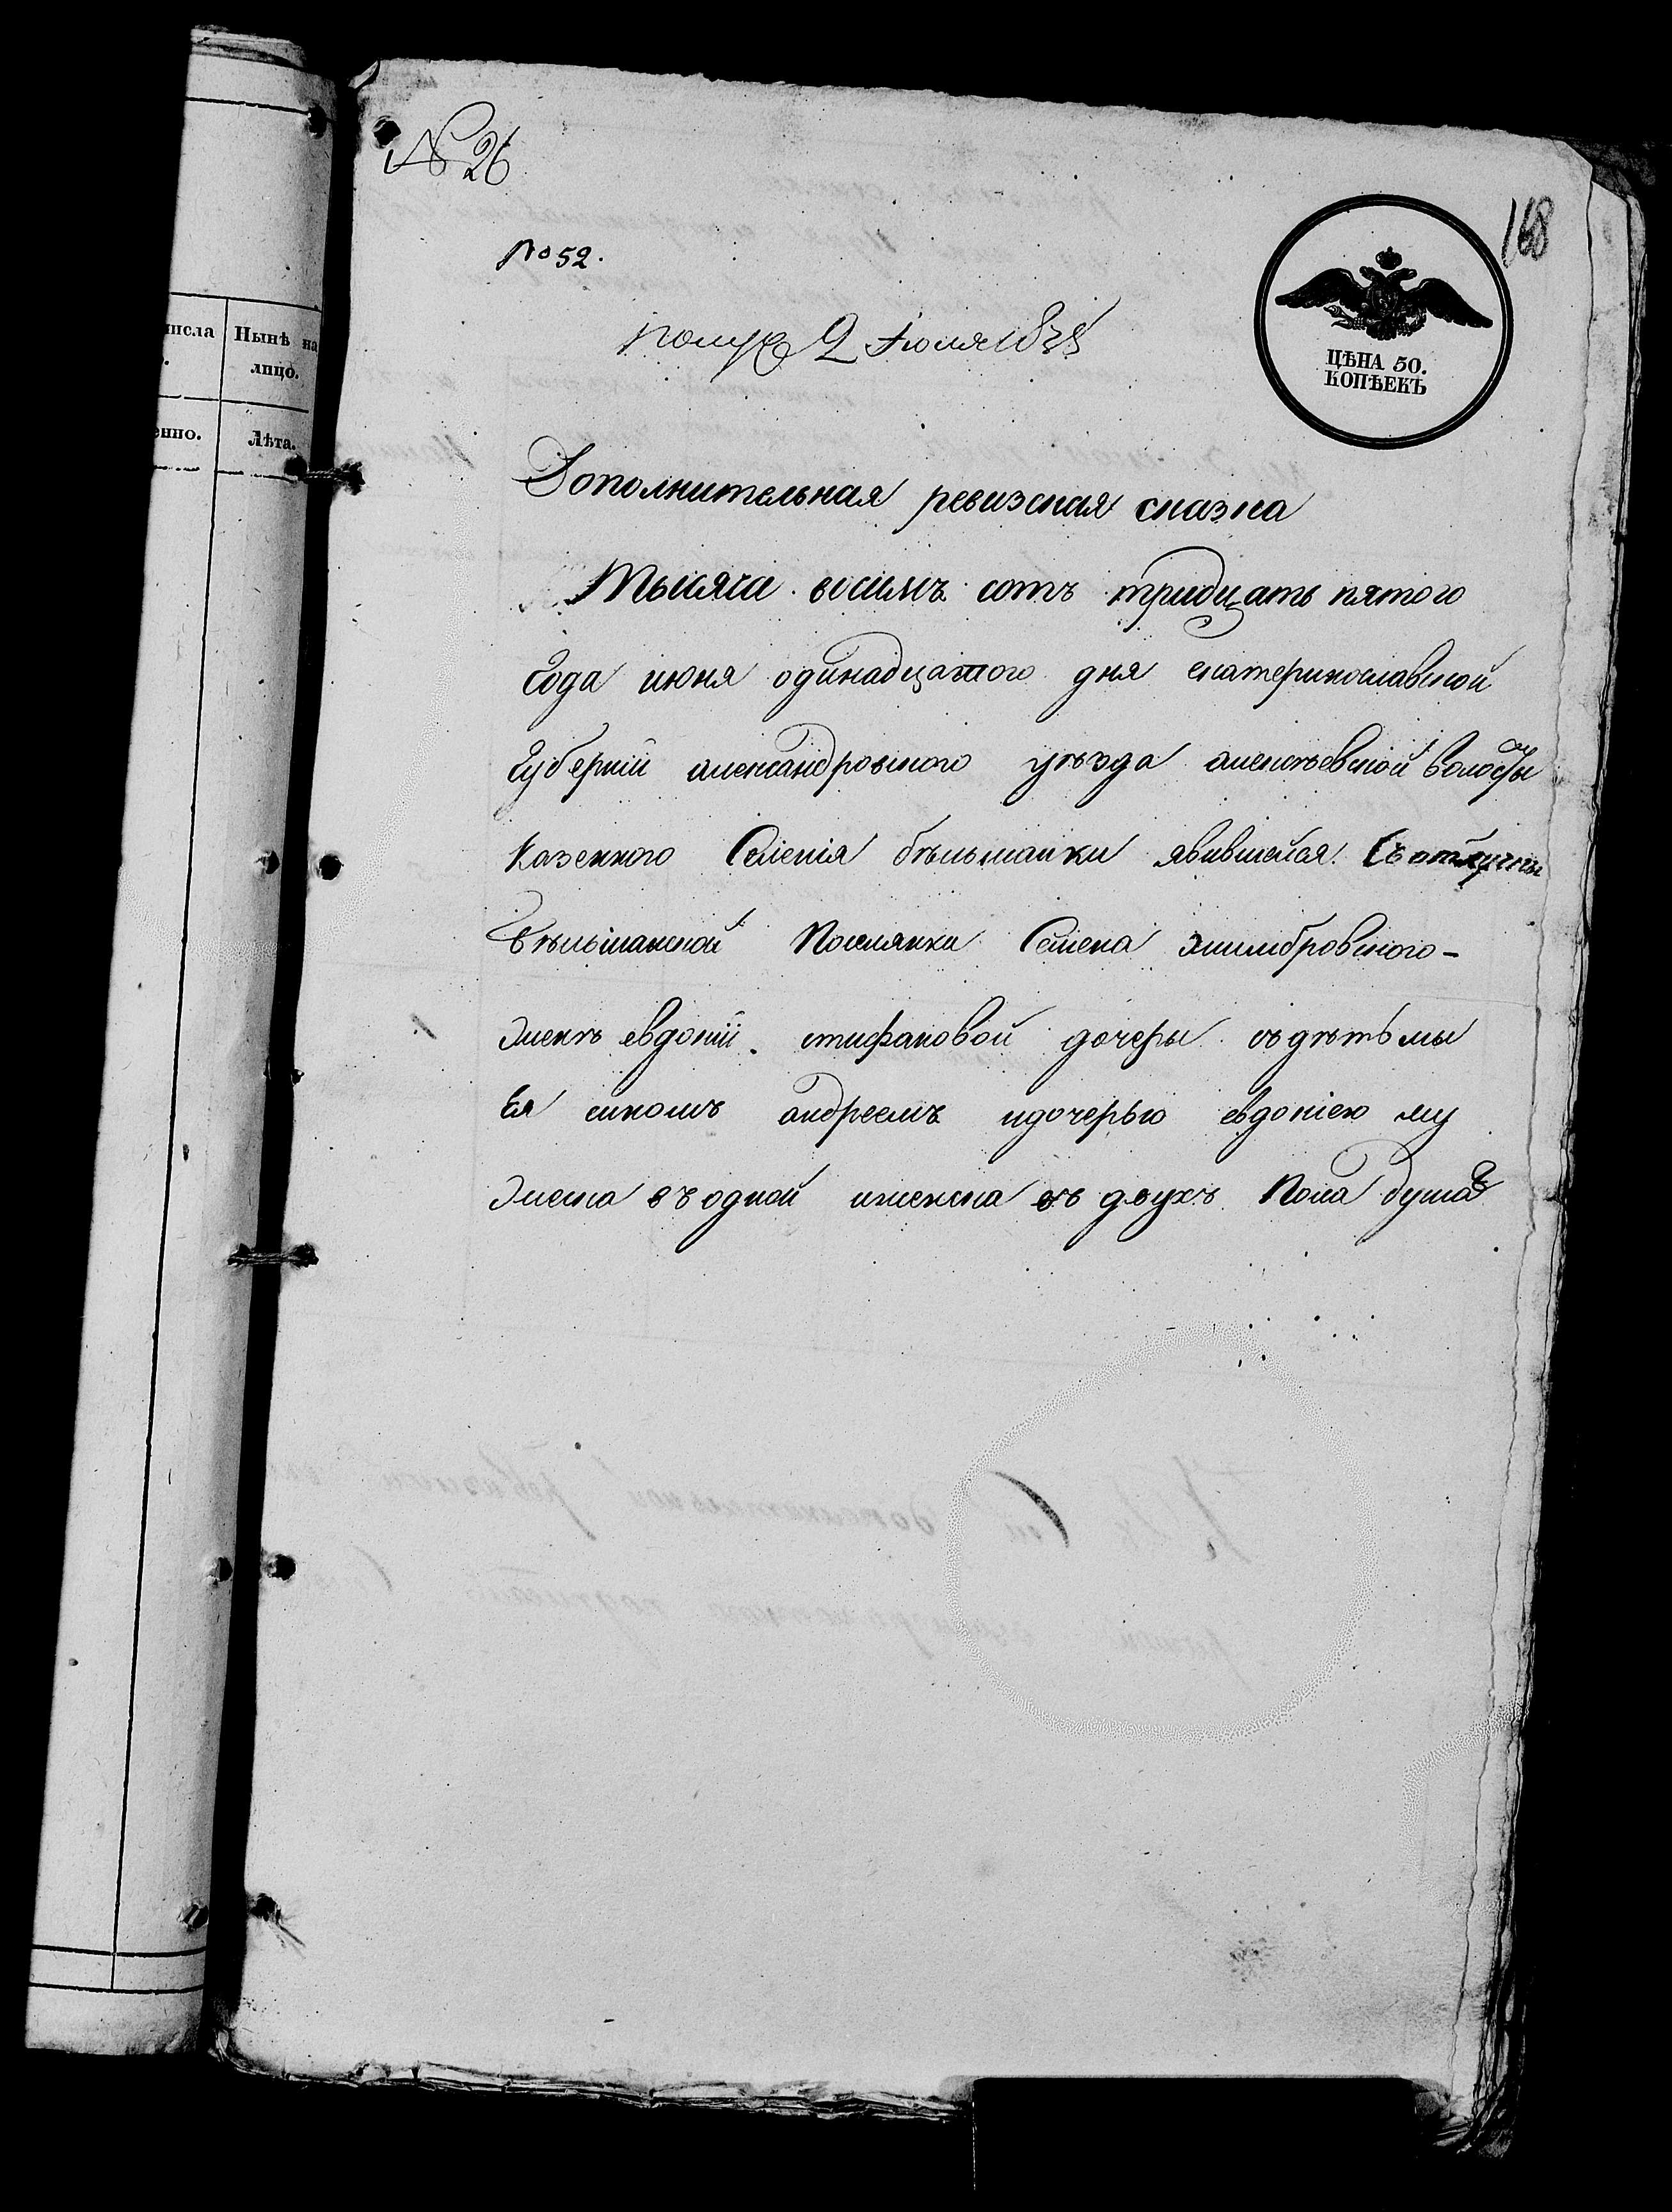 № 26
168
№ 52.
получ 2 Июля 1835
ЦѢНА 50.
КОПѢЕКЪ
Нынѣ на
лицо.
Лѣта.
Дополнительная ревизская сказка
Тысяча восимъ сотъ тридцать пятого
Года июня одинадцатого дня екатеринославской
Губерніи александровского уѣзда алексѣевской волосты
Казенного Селенія бѣльманки явившейся Съ отлучкы
Бѣльманской Поселянки Семена
женѣ евдокіи стифановой дочеры съ дѣтьмы
Ея сыномъ андреемъ идочерью евдокіею му
жеска въ одной иженска въ двухъ Пола душах